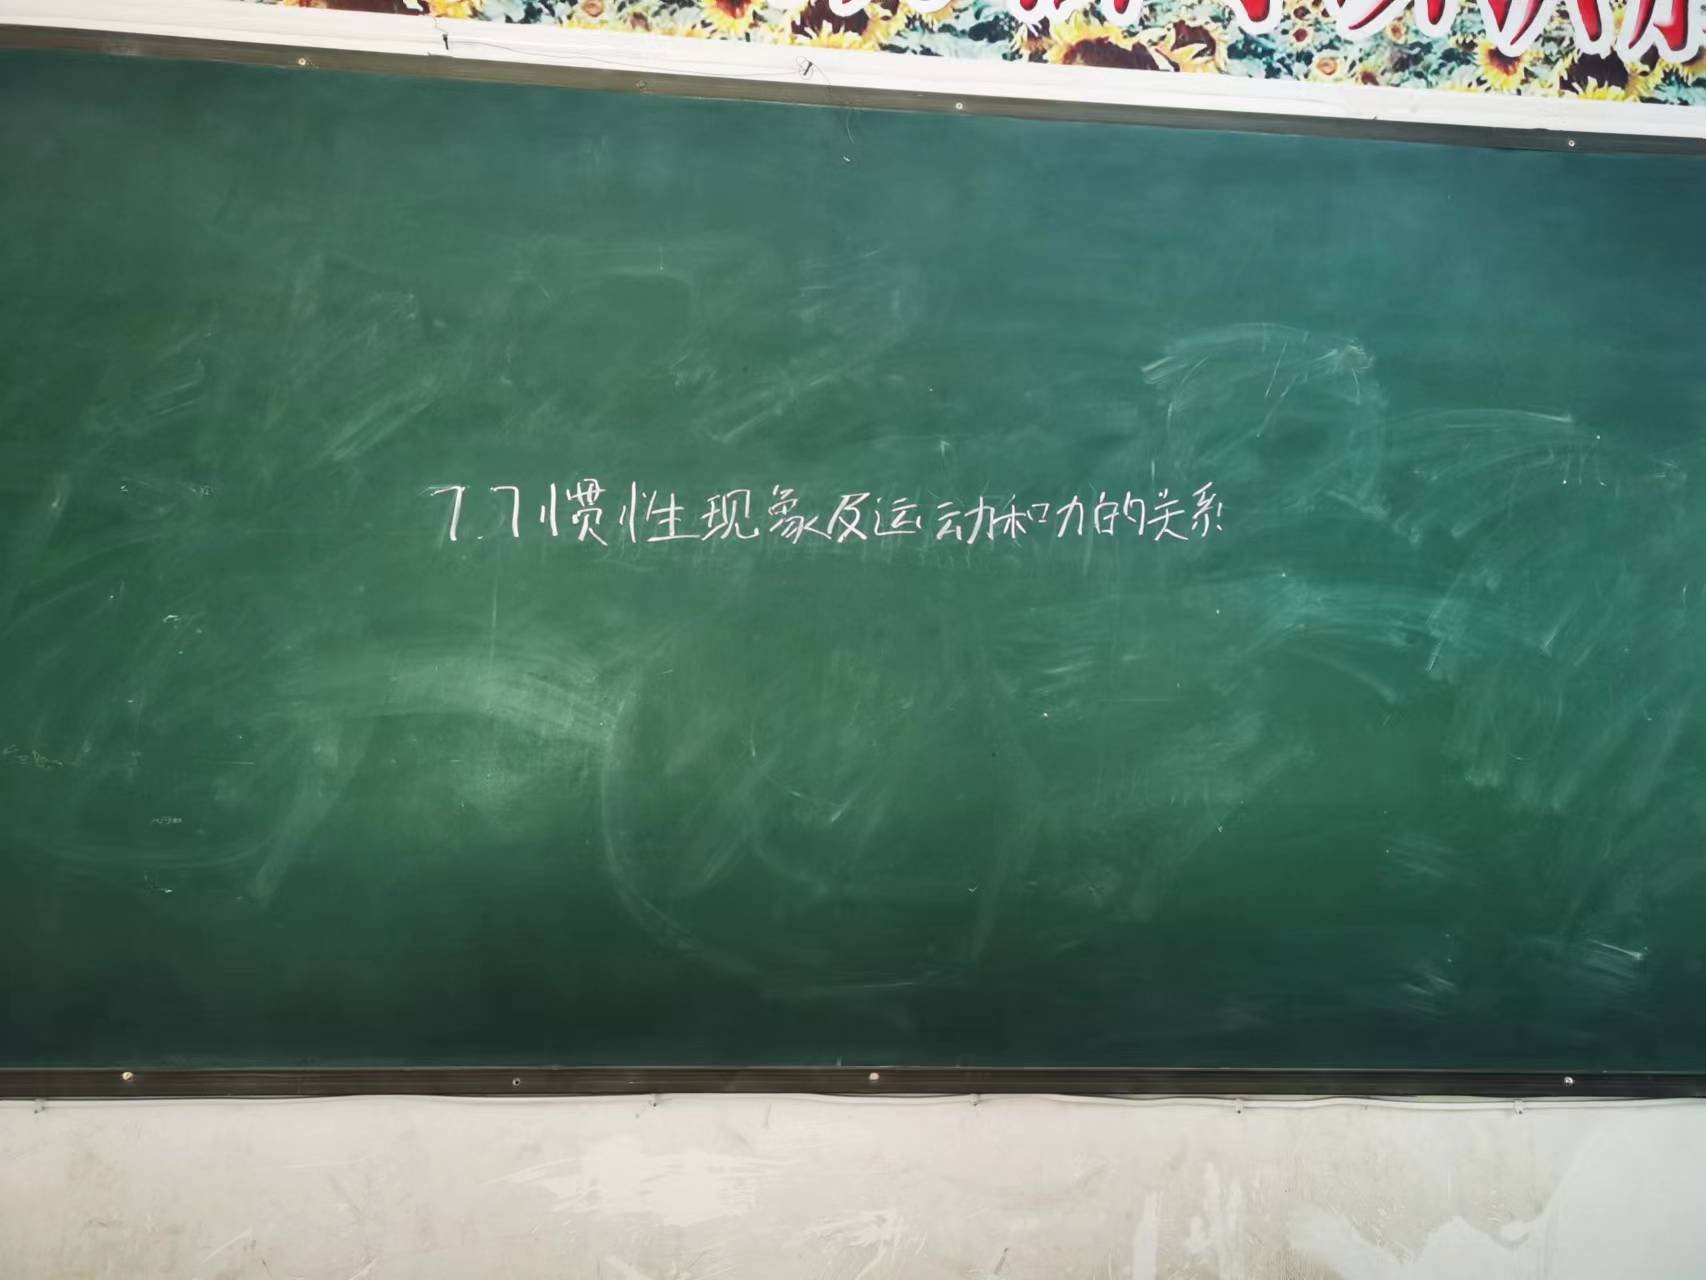 7.7惯性现象及运动和力的关系